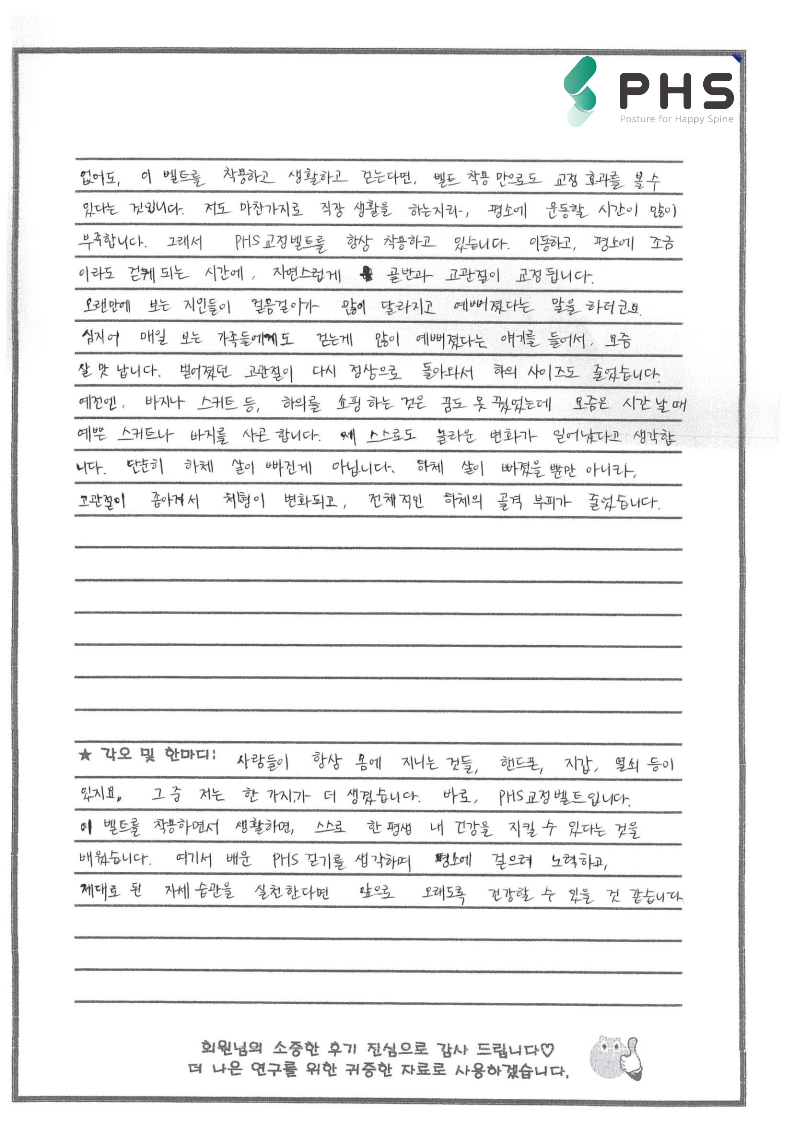 PHS
Posture for Happy Spine
없어도, 이 벨트를 착용하고 생활하고 걷는다면, 벨트 착용 만으로도 교정 효과를 볼 수
있다는 것입니다. 저도 마찬가지로 직장 생활을 하는지라, 평소에 운동할 시간이 많이
부족합니다. 그래서 PHS교정벨트를 항상 착용하고 있습니다. 이동하고, 평소에 조금
이라도 걷게 되는 시간에, 자연스럽게 골반과 고관절이 교정됩니다.
오랜만에 보는 지인들이 걸음걸이가 많이 달라지고 예뻐졌다는 말을 하더군요.
심지어 매일 보는 가족들에게도 걷는게 많이 예뻐졌다는 얘기를 들어서, 요즘
살 맛 납니다. 벌어졌던 고관절이 다시 정상으로 돌아와서 하의 사이즈도 줄었습니다.
예전엔, 바지나 스커트 등, 하의를 쇼핑 하는 것은 꿈도 못 꿨었는데 요즘은 시간 날 때
예쁜 스커트나 바지를 사곤 합니다. 제 스스로도 놀라운 변화가 일어났다고 생각합
니다. 단순히 하체 살이 빠진게 아닙니다. 하체 살이 빠졌을 뿐만 아니라,
고관절이 좁아져서 체형이 변화되고, 전체적인 하체의 골격 부피가 줄었습니다.
★ 각오 및 한마디: 사람들이 항상 몸에 지니는 것들, 핸드폰, 지갑, 열쇠 등이
있지요. 그 중 저는 한 가지가 더 생겼습니다. 바로, PHS교정벨트입니다.
이 벨트를 착용하면서 생활하면, 스스로 한평생 내 건강을 지킬 수 있다는 것을
배웠습니다. 여기서 배운 PHS 걷기를 생각하며 평소에 걸으려 노력하고,
제대로 된 자세 습관을 실천한다면 앞으로 오래도록 건강할 수 있을 것 같습니다.
회원님의 소중한 후기 진심으로 감사 드립니다♡
더 나은 연구를 위한 귀중한 자료로 사용하겠습니다.